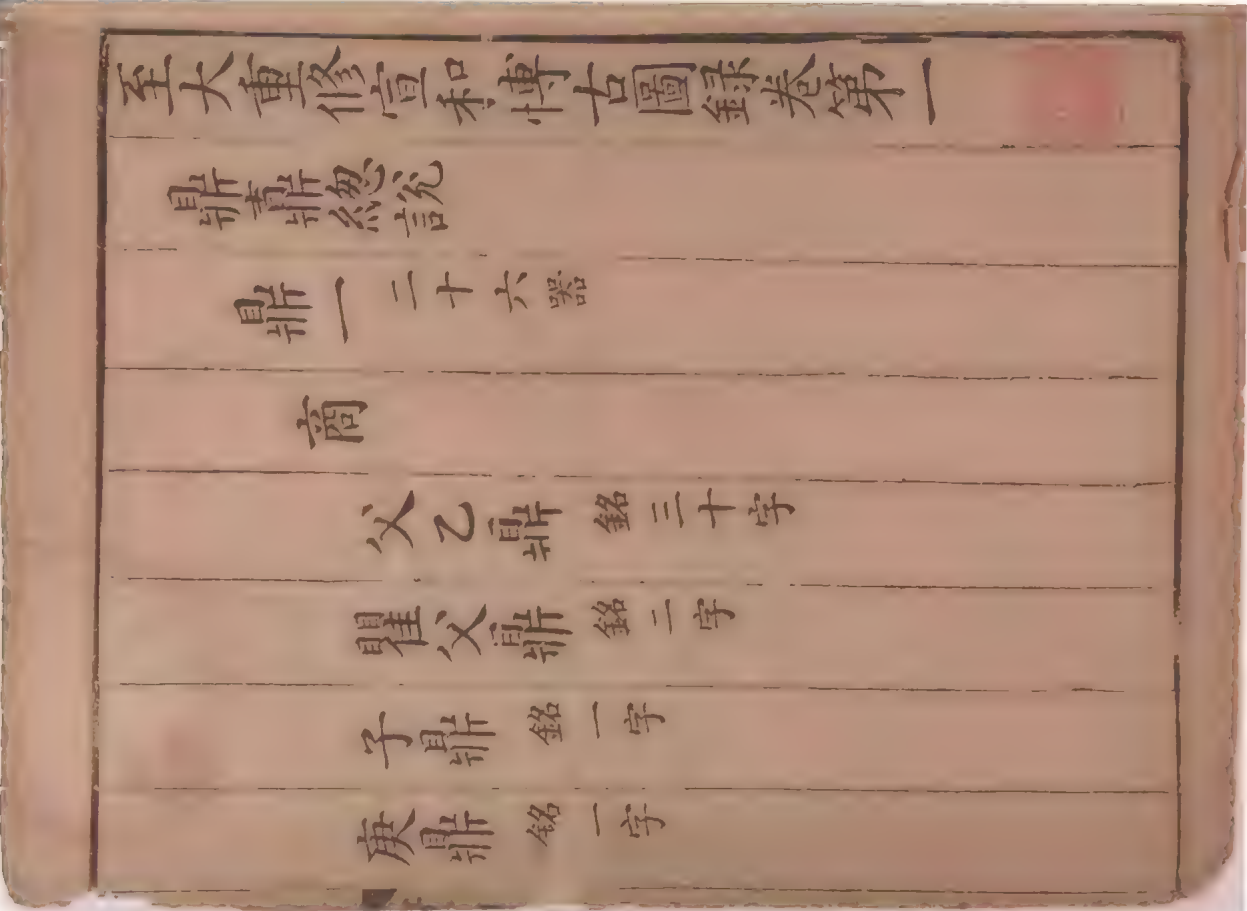 至大重修宣和博古圖錄卷第一
鼎鼒鼎緫說
鼎一 二十六器
商
父乙鼎 銘三十字
瞿父鼎 銘二字
子鼎 銘一字
庚鼎 銘一字